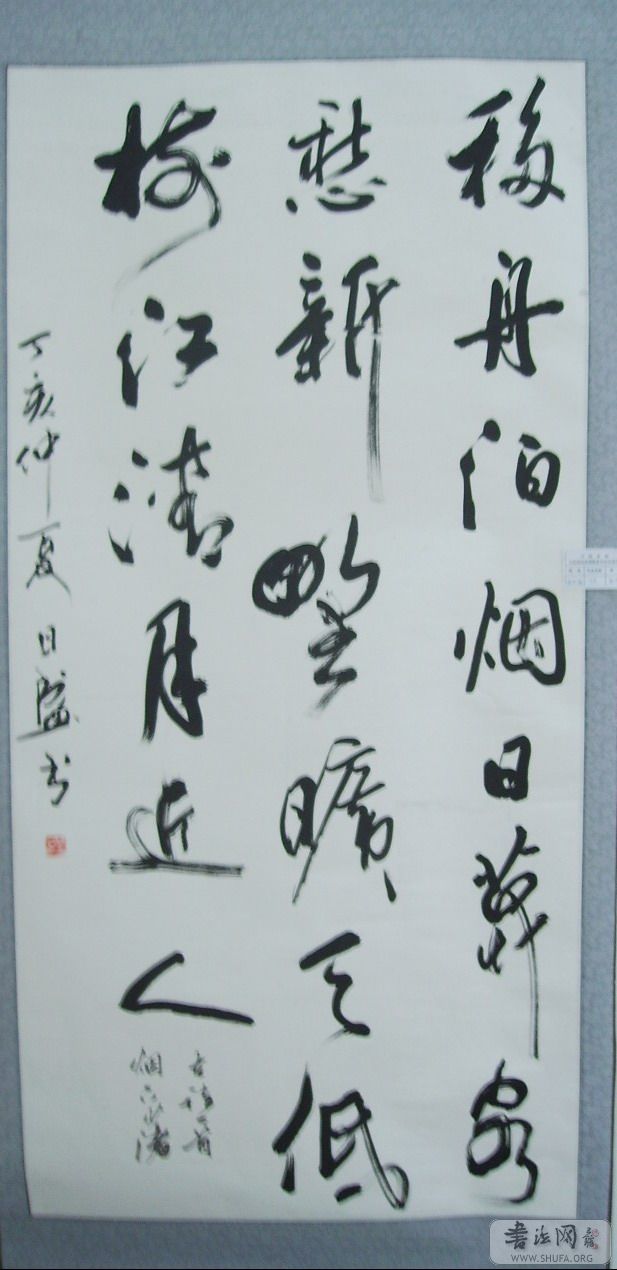 移舟泊烟日暮客
愁新野曠天低
樹江清月近人
古诗一首
烟下少渚
丁亥仲夏日书
書法网
WWW.SHUFA.ORG